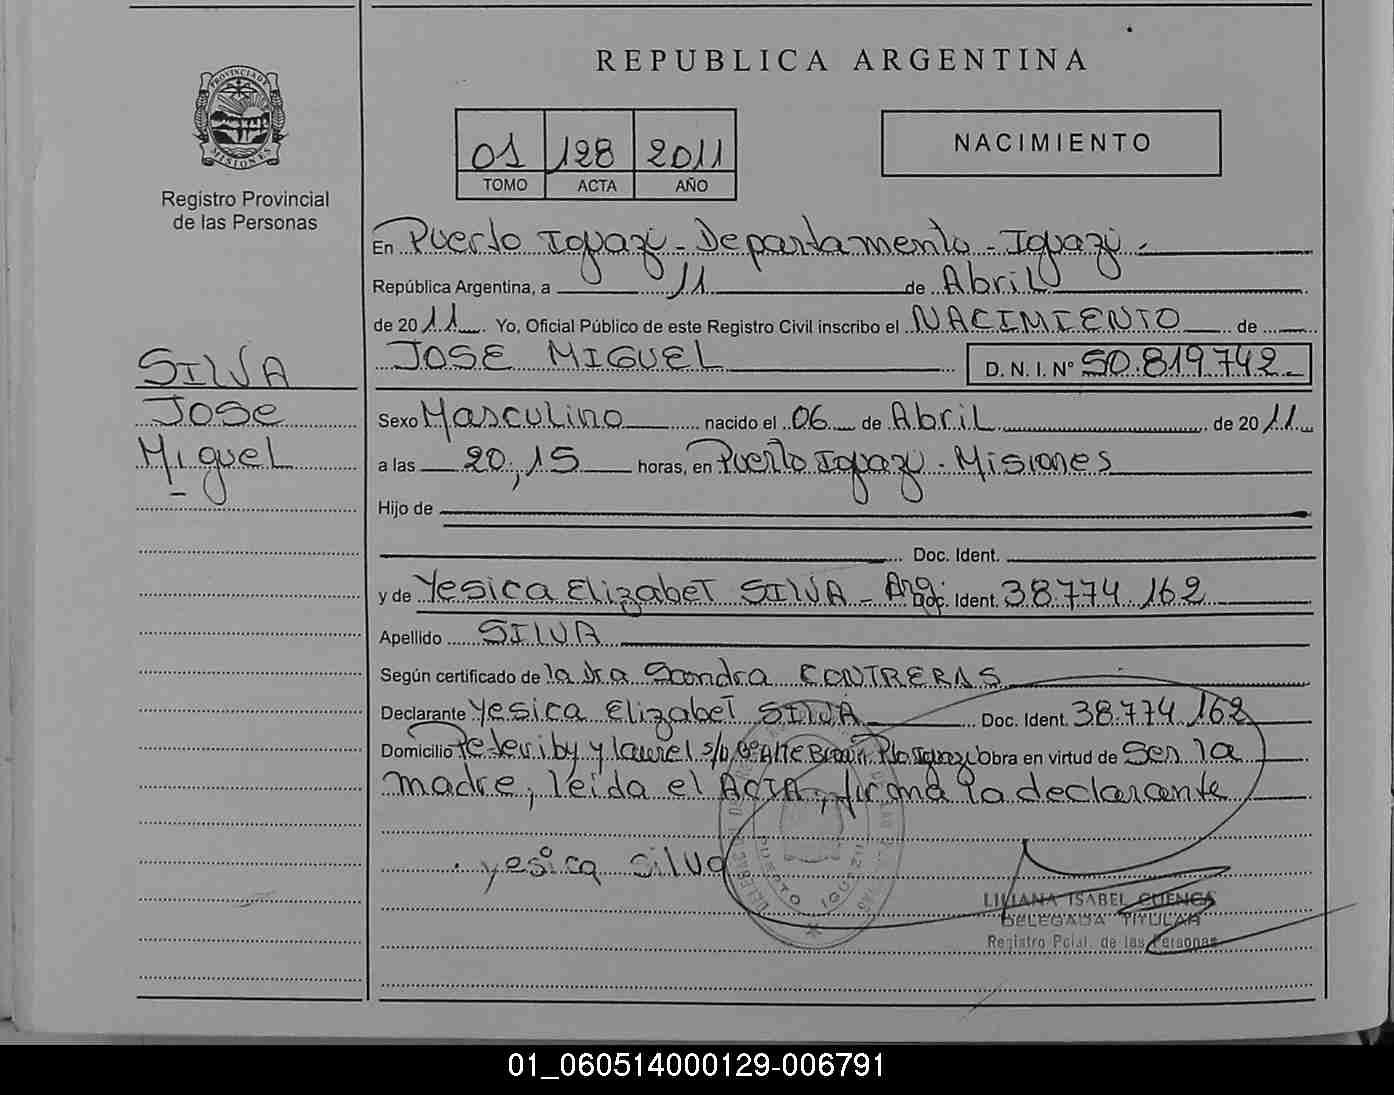 REPUBLICA ARGENTINA
PROVINCIA DE MISIONES
Registro Provincial
de las Personas
01 128 2011
TOMO ACTA AÑO
NACIMIENTO
En Puerto Iguazú - Departamento - Iguazú -
República Argentina, a 11 de Abril
de 2011. Yo, Oficial Público de este Registro Civil inscribo el NACIMIENTO de
JOSE MIGUEL D. N. I. Nº 50.819.742
SILVA
Jose
Miguel
Sexo Masculino nacido el 06 de Abril de 2011
a las 20,15 horas, en Puerto Iguazu - Misiones
Hijo de
Doc. Ident.
y de Yesica Elizabet SILVA - Arg. Doc. Ident. 38.774.162
Apellido SILVA
Según certificado de la dra Sandra CONTRERAS
Declarante Yesica Elizabet SILVA Doc. Ident. 38.774.162
Domicilio y laurel s/n Bº Alte Brown Pto Iguazú Obra en virtud de Ser la
madre, leida el ACTA, firma la declarante
yesica silva
PUERTO IGUAZU
LILIANA ISABEL CUENCA
DELEGADA TITULAR
Registro Pcial. de las Personas
01_060514000129-006791